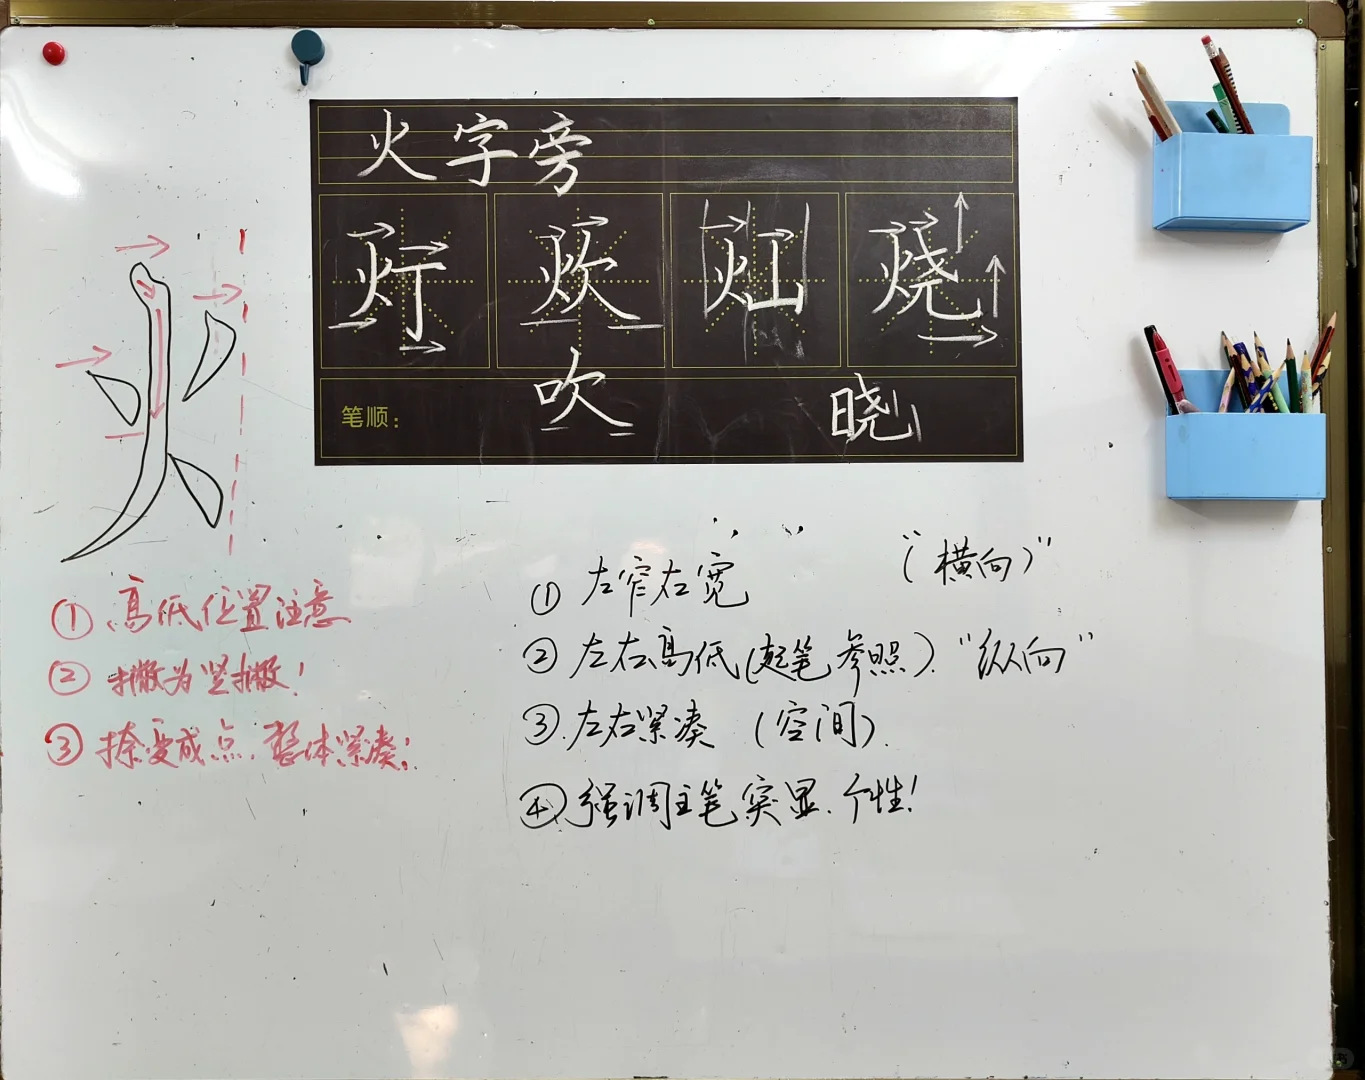 火字旁
灯 炊 灿 烧
吹 晓
笔顺:
火
①高低位置注意
②撇为竖撇!
③捺变成点.整体紧凑!
①左窄右宽 “(横向)”
②左右高低(起笔参照).“纵向”
③.左右紧凑 (空间).
④强调主笔突显.个性!